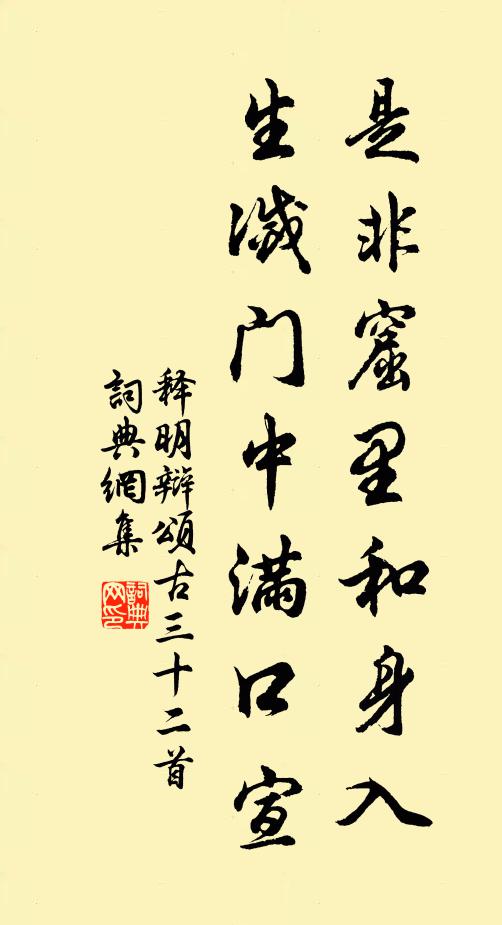 是非窟里和身入
生滅门中满口宣
释明辩颂古三十二首
词典網集
詞典网印